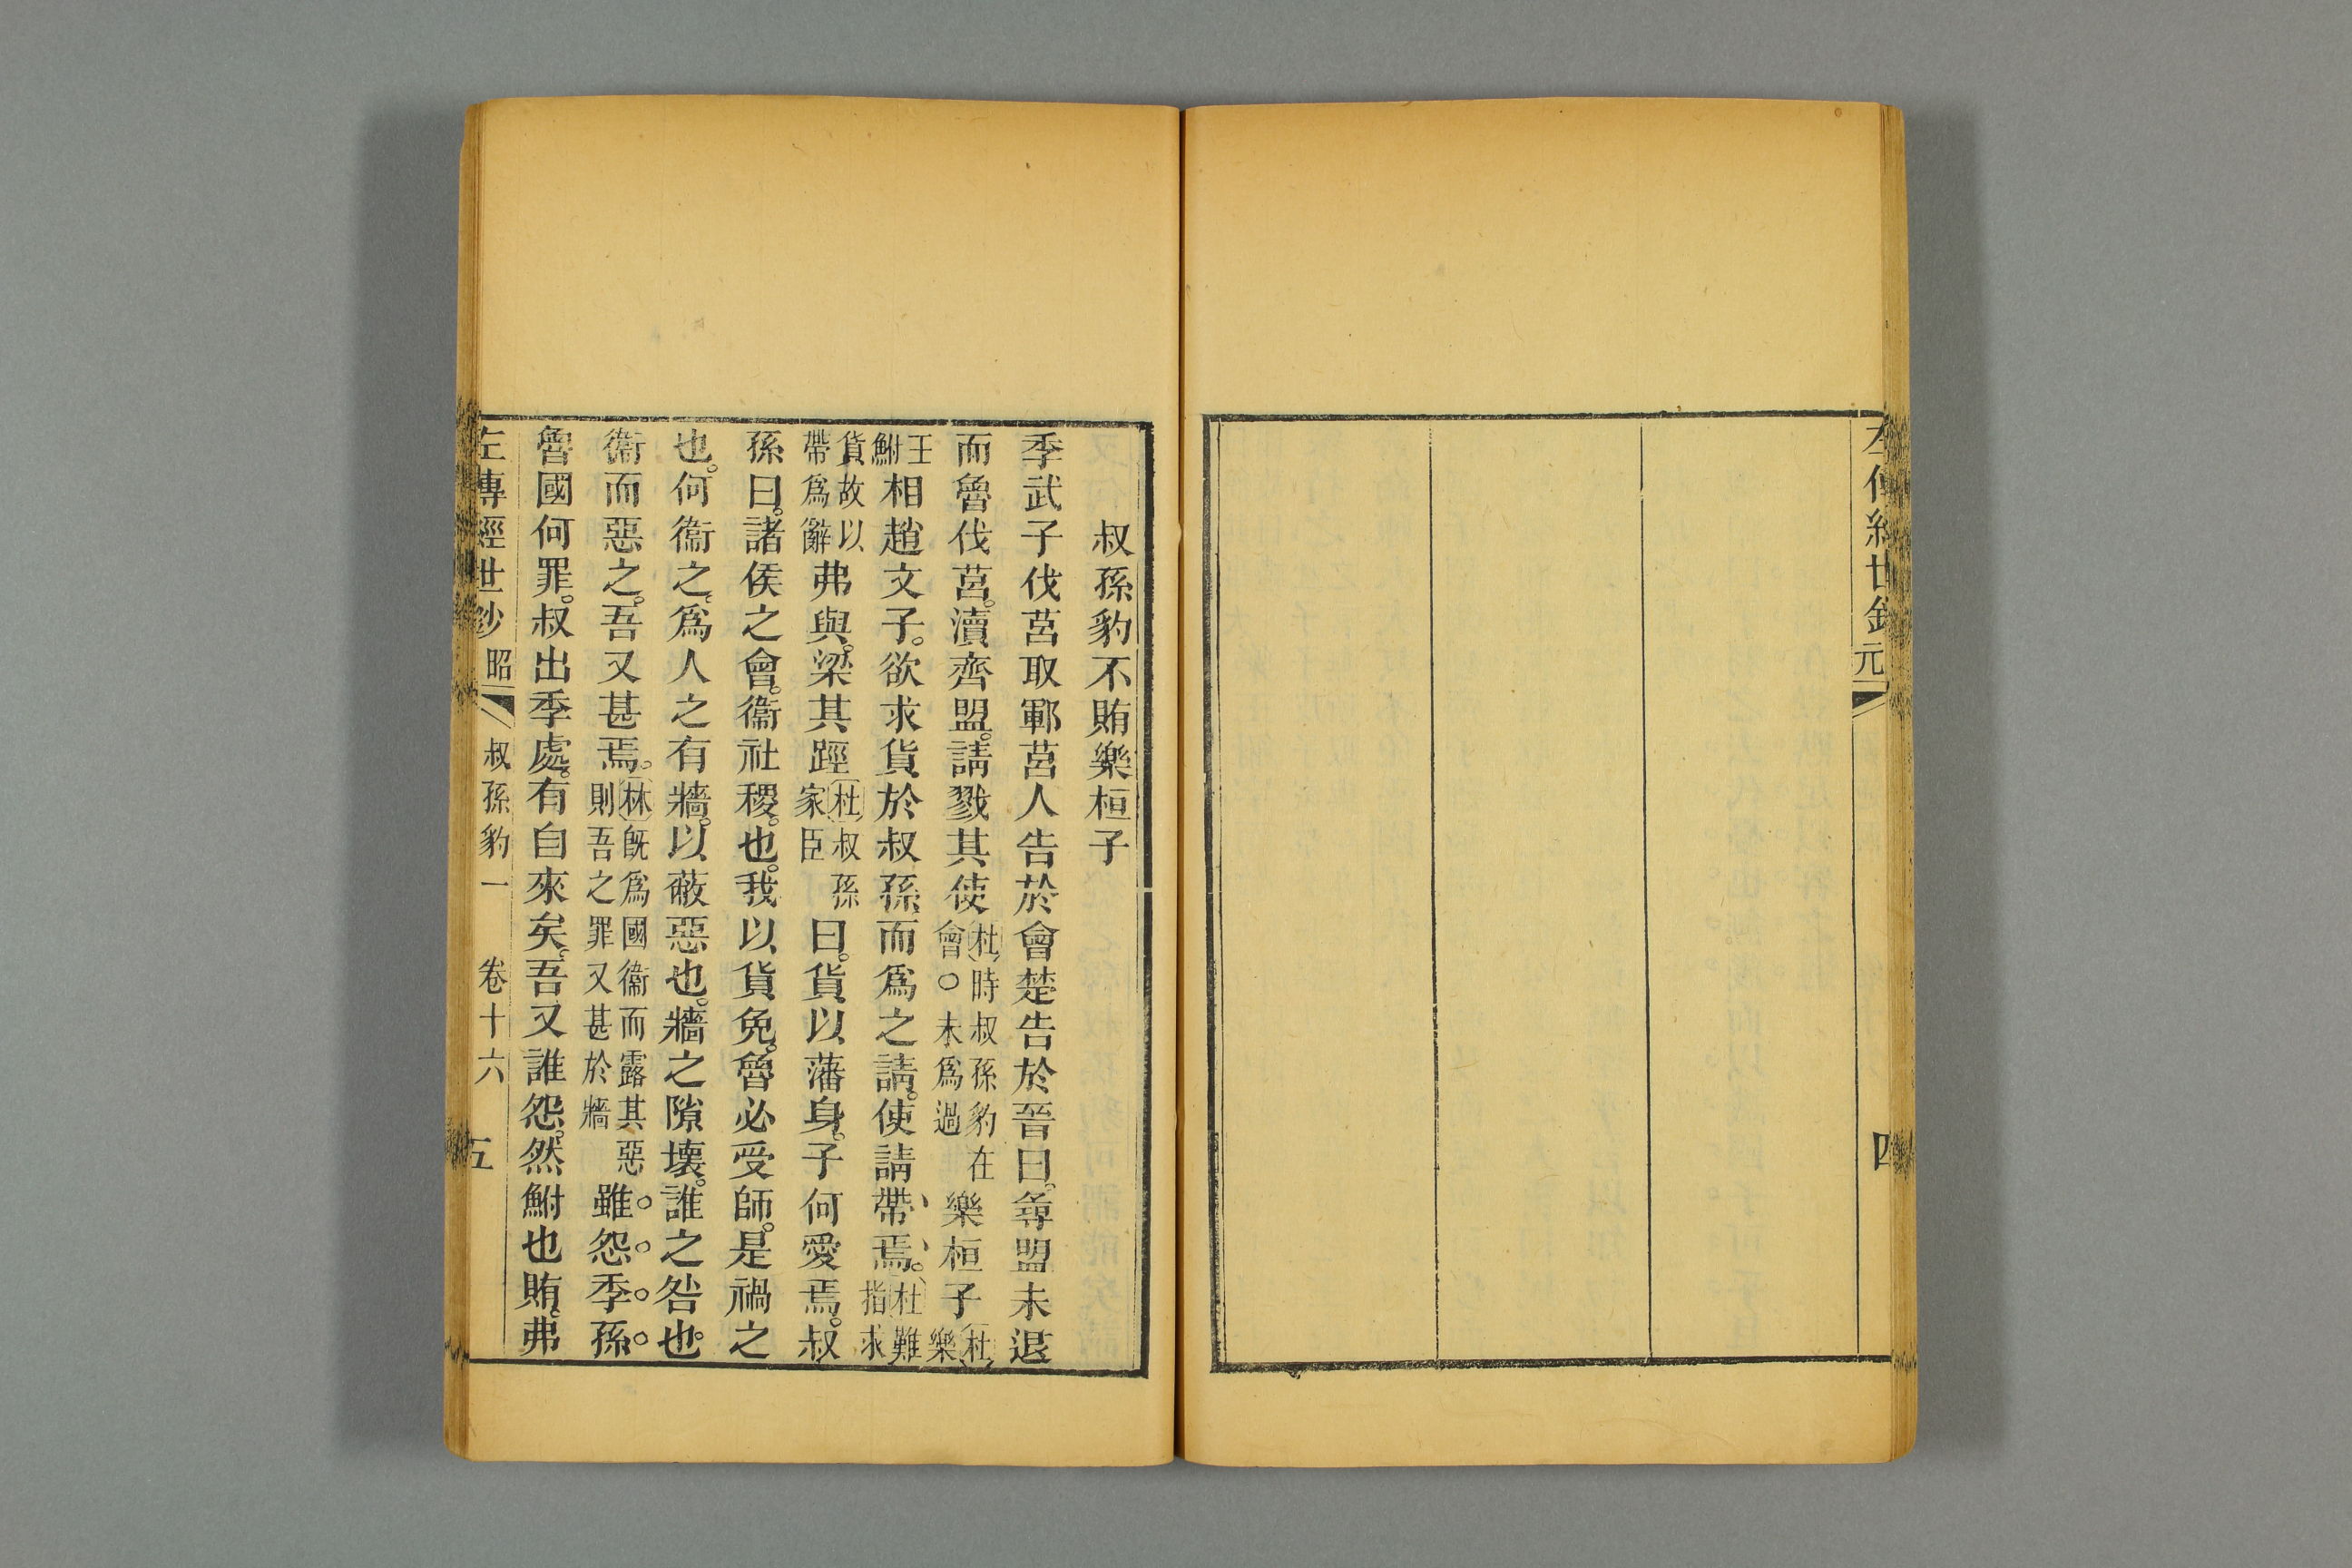 左傳經世鈔 元 四
叔孫豹不賄樂桓子
季武子伐莒取鄆莒人告於會楚告於晉曰。尋盟未退
而魯伐莒。瀆齊盟。請戮其使杜時叔孫豹在會○未爲過樂桓子杜樂
王鮒相趙文子。欲求貨於叔孫而爲之請。使請帶焉。杜難指求
貨故以帶爲辭弗與。梁其踁杜叔孫家臣曰。貨以藩身。子何愛焉。叔
孫曰。諸侯之會。衞社稷。也。我以貨免。魯必受師。是禍之
也。何衞之。爲人之有牆。以蔽惡也。牆之隙壞。誰之咎也。
衞而惡之。吾又甚焉。林旣爲國衞而露其惡則吾之罪又甚於牆雖怨季孫。
魯國何罪。叔出季處。有自來矣。吾又誰怨。然鮒也賄。弗
左傳經世鈔 昭 叔孫豹一 卷十六 五